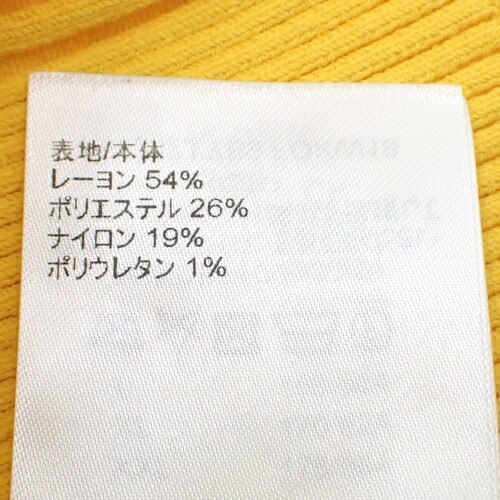 表地/本体
レーヨン 54%
ポリエステル 26%
ナイロン 19%
ポリウレタン 1%